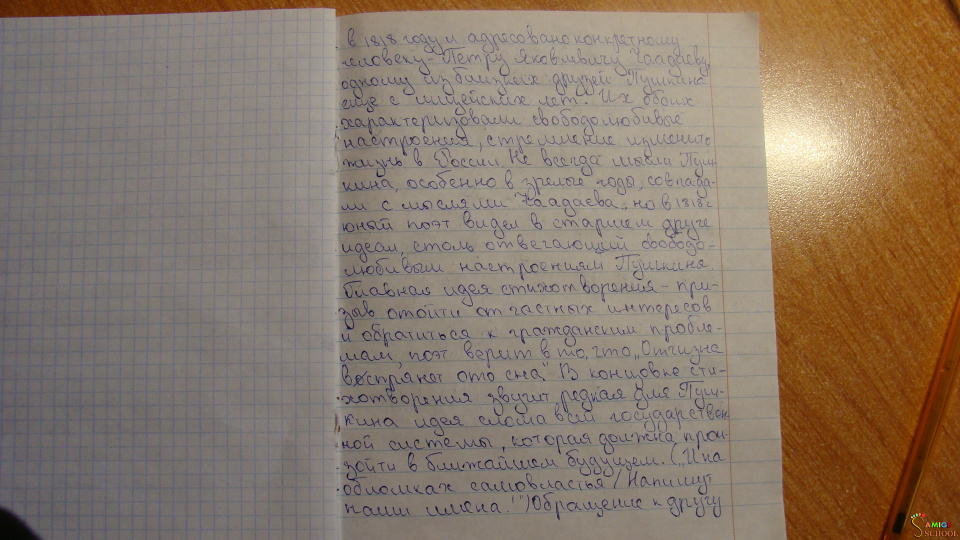 в 1818 году и адресовано конкретному
человеку - Петру Яковлевичу Чаадаеву,
одному из близких друзей Пушкина
еще с лицейских лет. Их обоих
характеризовали свободолюбивые
настроения, стремление изменить
жизнь в России. Не всегда мысли Пуш-
кина, особенно в зрелые годы, совпада-
ли с мыслями Чаадаева, но в 1818г.
юный поэт видел в старшем друге
идеал, столь отвечающий свободо-
любивым настроениям Пушкина.
Главная идея стихотворения - при-
зыв отойти от частных интересов
и обратиться к гражданским пробле-
мам, поэт верит в то, что „Отчизна
воспрянет ото сна". В концовке сти-
хотворения звучит редкая для Пуш-
кина идея слома всей государствен
ной системы, которая должна прои-
зойти в ближайшем будущем. („И на
обломках самовластья / Напишут
наши имена!")Обращение к другу
AMIGO
SCHOOL